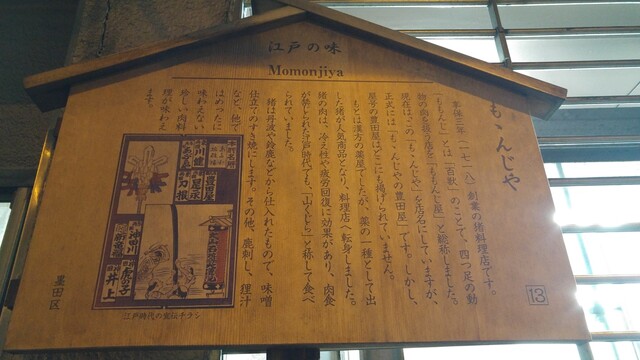 江戸の味
Momonjiya
もゝんじや
享保三年(一七一八)創業の猪料理店です。
「ももんじ」とは「百獣」のことで、四つ足の動
物の肉を扱う店を「ももんじ屋」と総称しました。
現在はこの「もゝんじや」を店名にしていますが、
正式には「もゝんじやの豊田屋」です。しかし、
屋号の豊田屋はどこにも掲げられていません。
もとは漢方の薬屋でしたが、薬の一種として出
した猪が人気商品となり、料理店へ転身しました。
猪の肉は、冷え性や疲労回復に効果があり、肉食
が禁じられた江戸時代でも、「山くじら」と称して食べ
られていました。
猪は丹波や鈴鹿などから仕入れたもので、味噌
仕立てのすき焼にします。その他、鹿刺し、狸汁
など、他で
はめったに
味わえない
珍しい肉料
理が味わえ
ます。
13
江戸時代の宣伝チラシ
墨田区